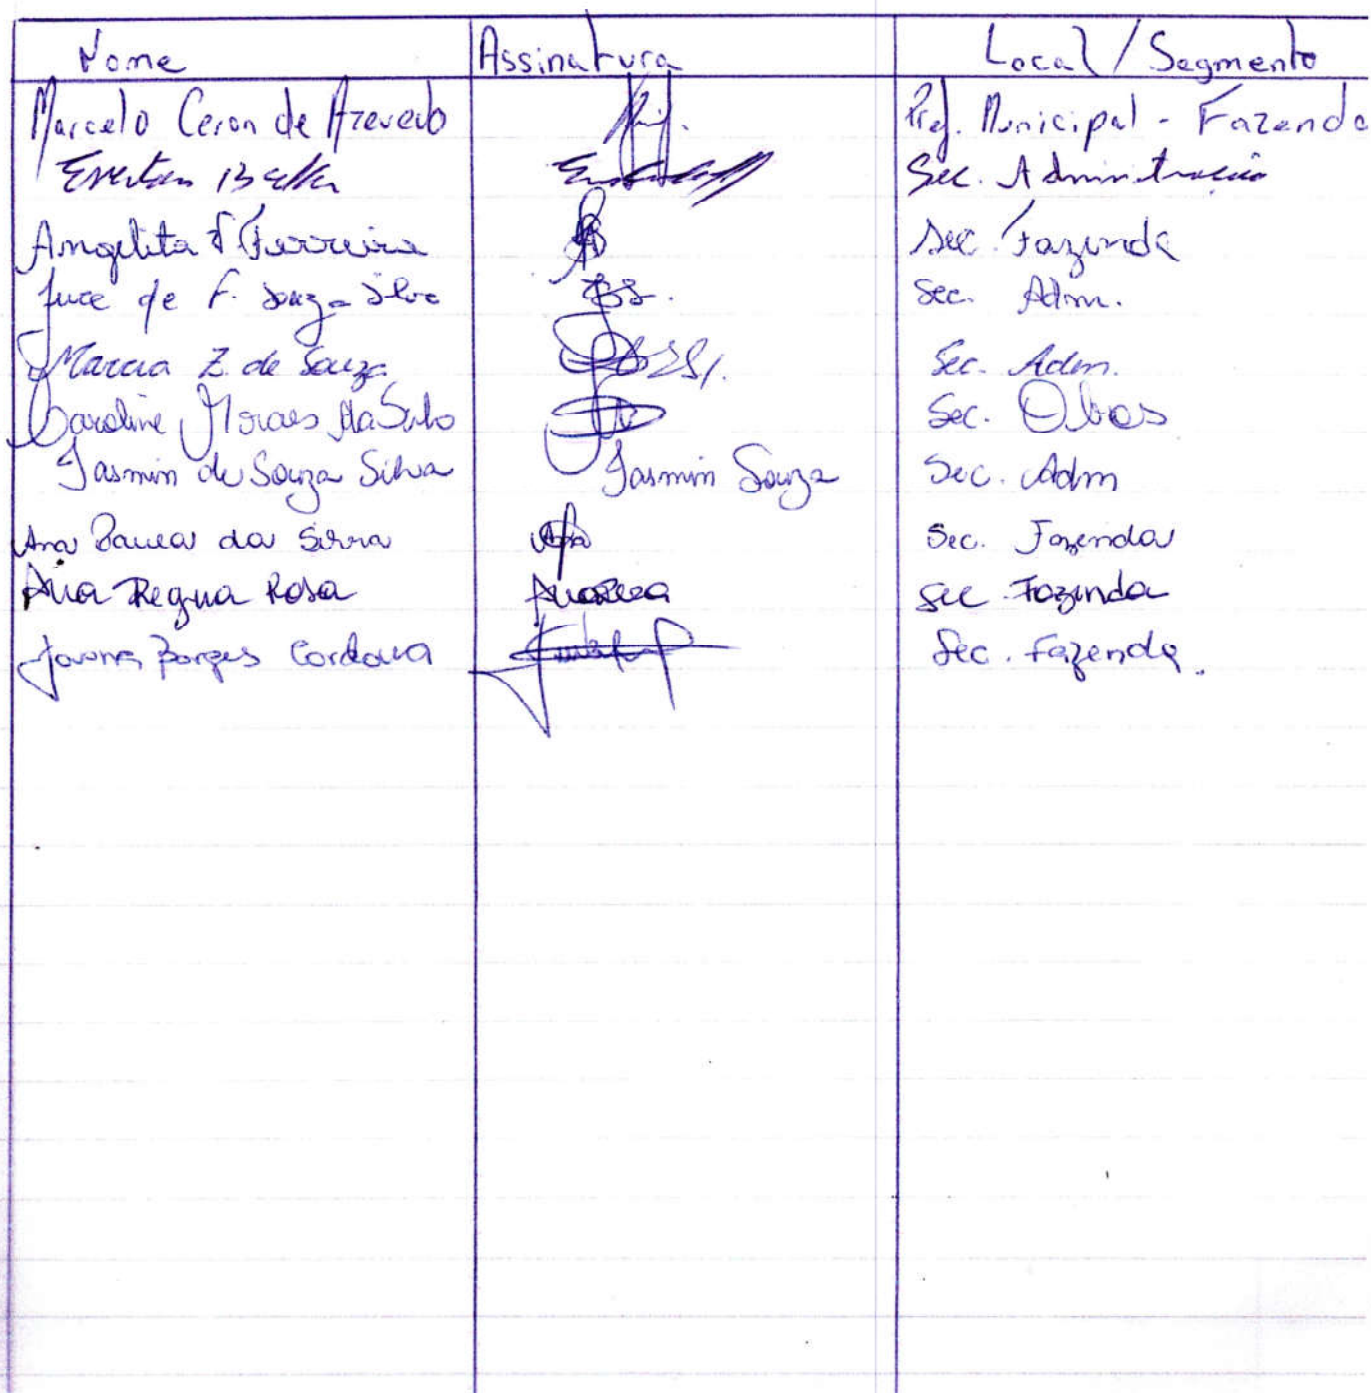 Nome Assinatura Local / Segmento
Marcelo Ceron de Azevedo Pref. Municipal - Fazenda
Sec. Administração
Angelita F Ferreira Sec. Fazenda
de F. Souza Silva Sec. Adm.
Marcia Z. de Souza Sec. Adm.
Caroline Moraes da Silva Sec. Obras
Iasmin de Souza Silva Iasmin Souza Sec. Adm
Ana da Sec. Fazenda
Ana Regina Rosa Sec. Fazenda
Borges Cordova Sec. Fazenda.